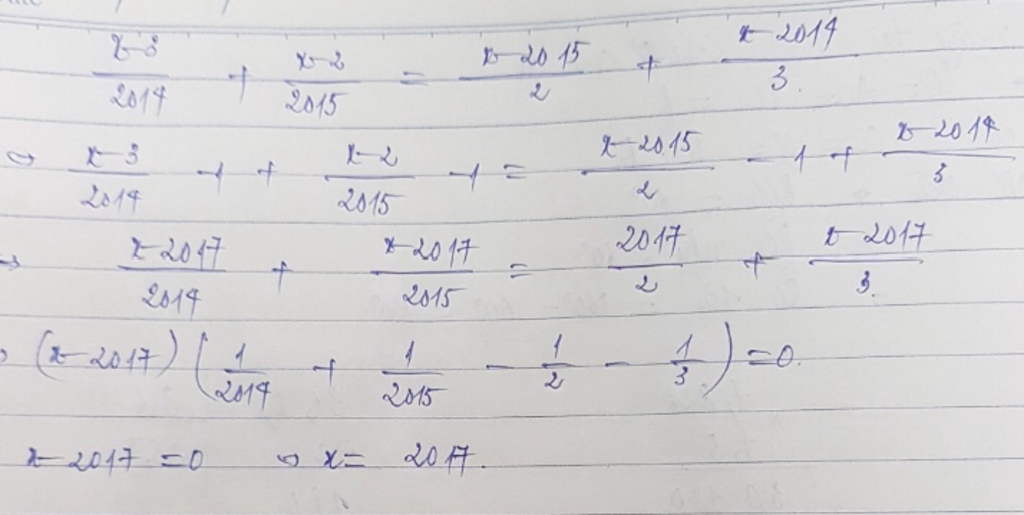 x-3/2014 + x-2/2015 = x-2015/2 + x-2014/3
⇔ x-3/2014 -1 + x-2/2015 -1 = x-2015/2 -1 + x-2014/3
⇔ x-2017/2014 + x-2017/2015 = 2017/2 + x-2017/3
⇔ (x-2017)(1/2014 + 1/2015 - 1/2 - 1/3) = 0.
x-2017 = 0 ⇔ x = 2017.